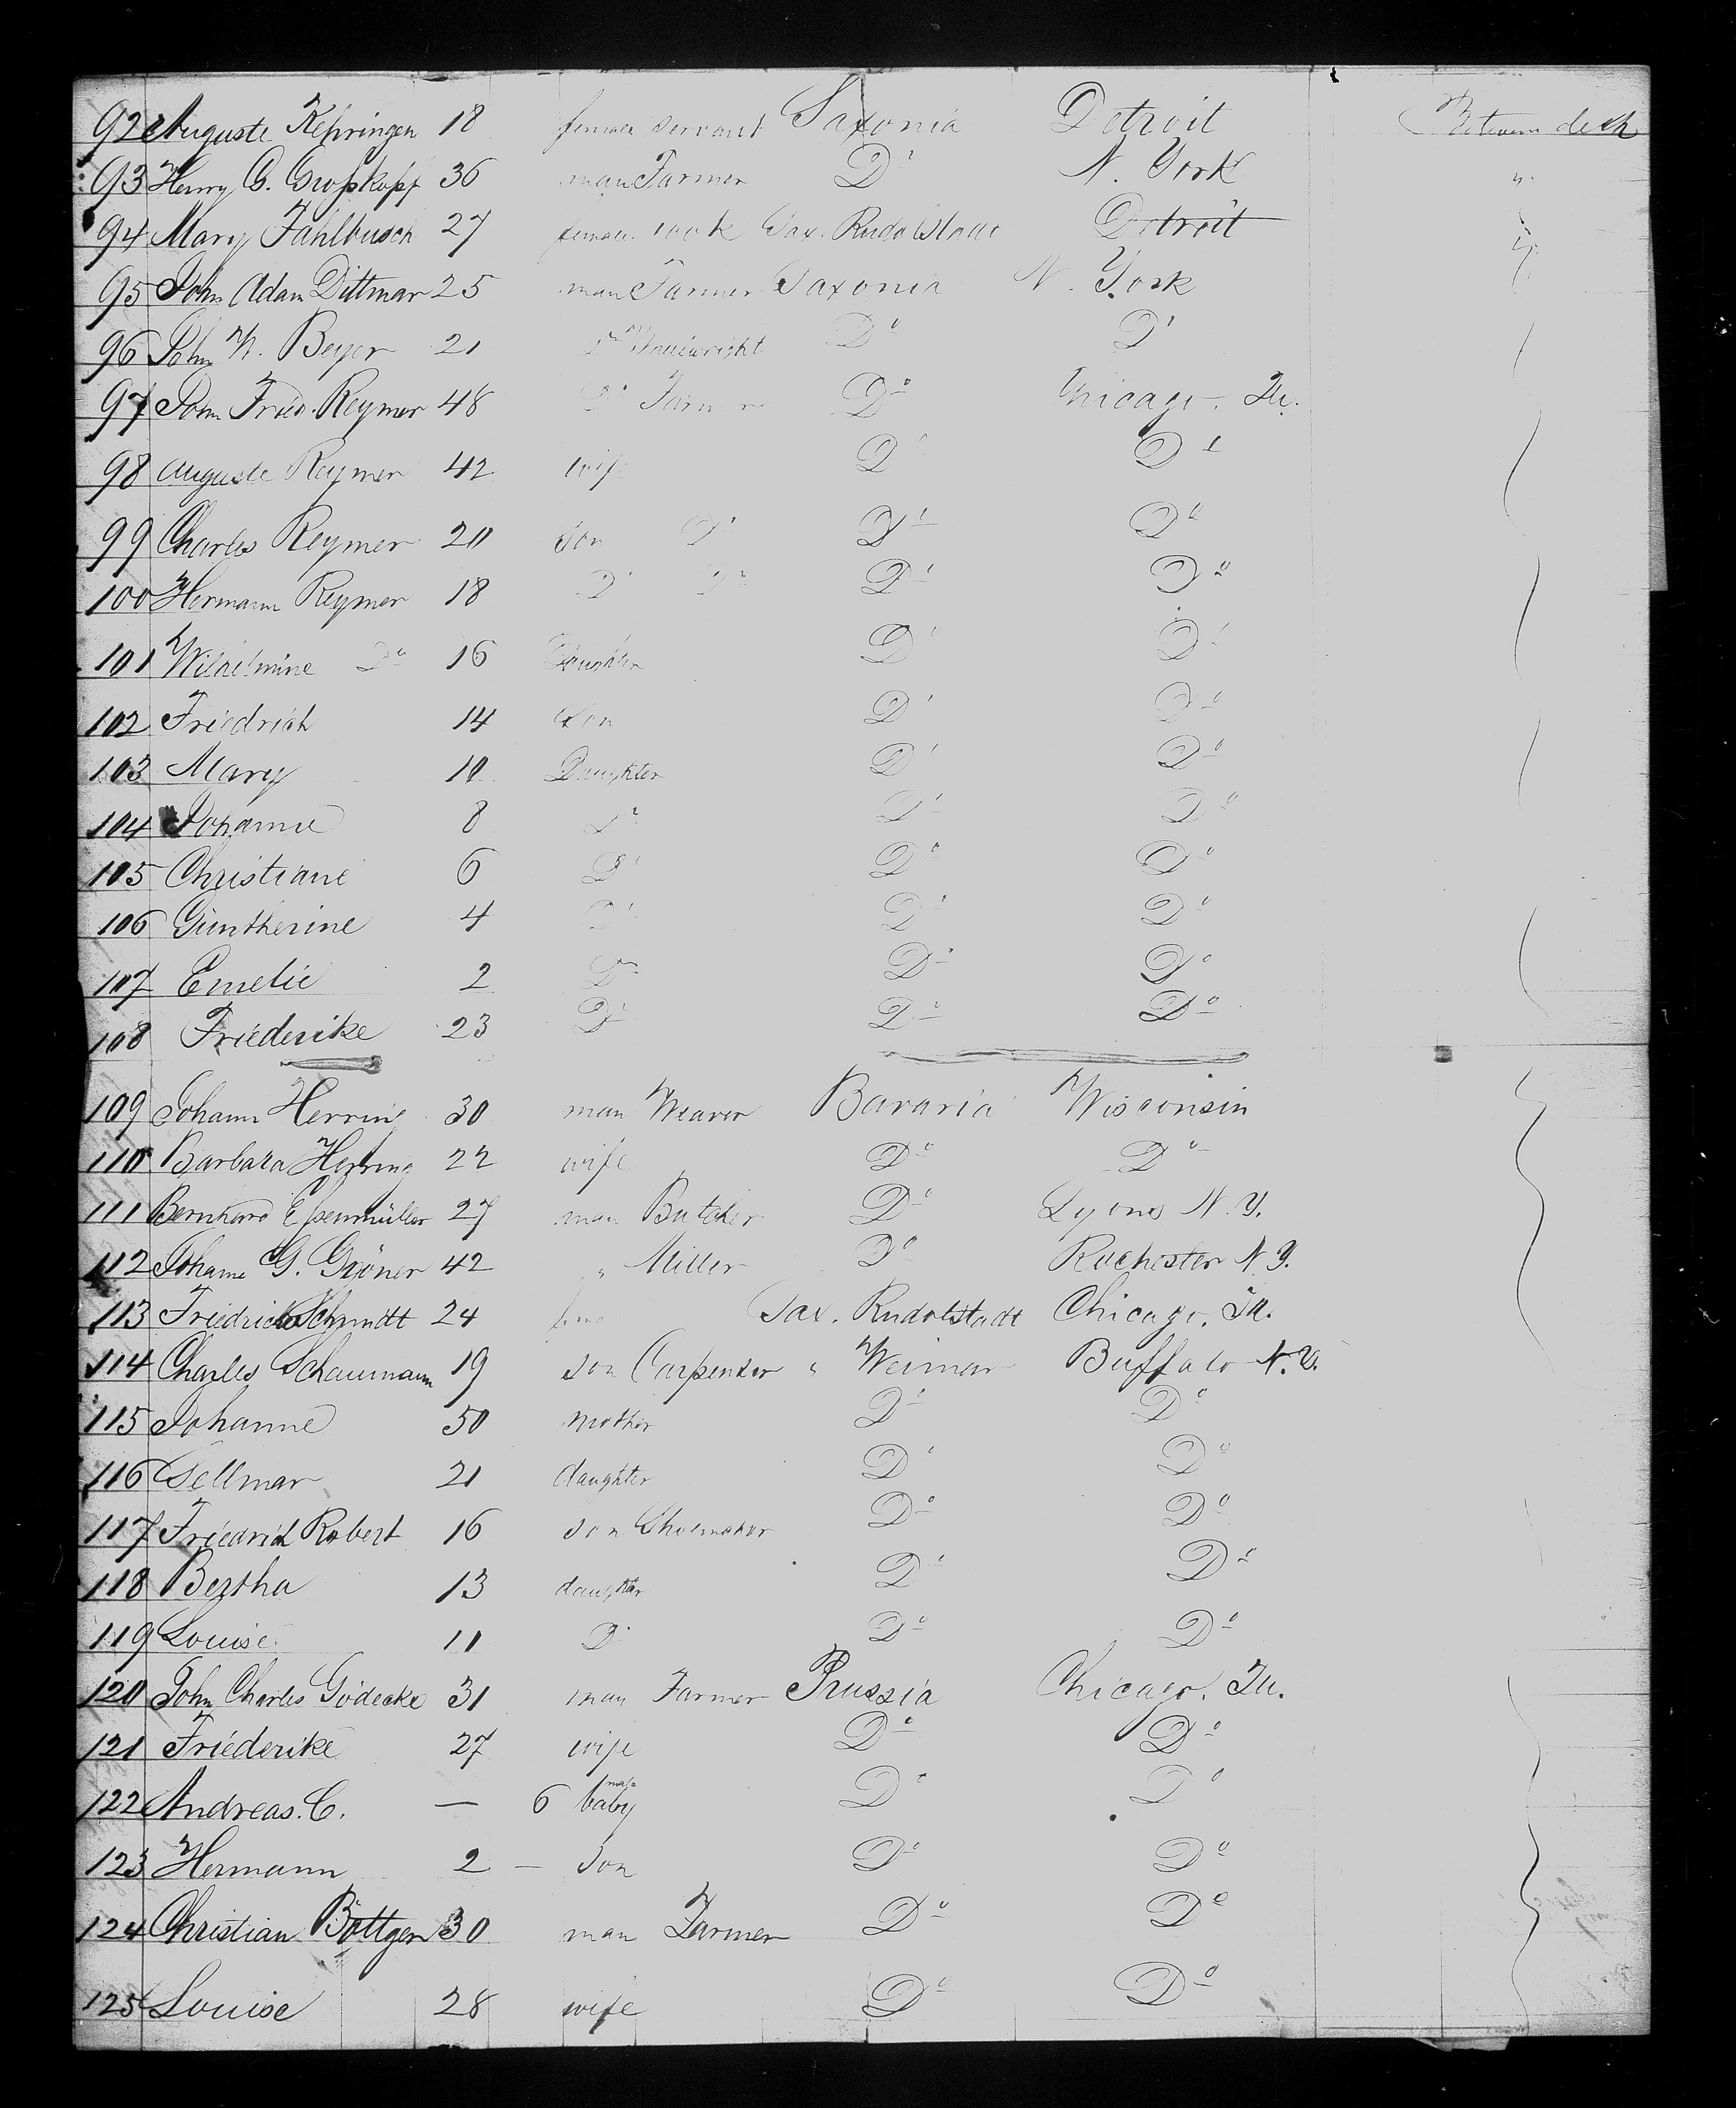 92 Auguste Kehringen 18 female servant Saxonia Detroit Between deck
93 Henry G. Großkopf 36 man Farmer Do N. York "
94 Mary Fahlbusch 27 female cook Sax. Rudolstadt Detroit "
95 John Adam Dittmar 25 man Farmer Saxonia N. York
96 John N. Beyer 21 Do Wheelwright Do Do
97 John Fried. Reymer 48 Do Farmer Do Chicago. Ill.
98 Auguste Reymer 42 wife Do Do
99 Charles Reymer 20 son Do Do Do
100 Hermann Reymer 18 Do Do Do Do
101 Wilhelmine Do 16 Daughter Do Do
102 Friedrich 14 son Do Do
103 Mary 10 Daughter Do Do
104 Johanne 8 Do Do Do
105 Christiane 6 Do Do Do
106 Güntherine 4 Do Do Do
107 Emelie 2 Do Do Do
108 Friederike 23 Do Do Do
109 Johann Herring 30 man Weaver Bavaria Wisconsin
110 Barbara Herring 22 wife Do Do
111 Bernhard Eßenmüller 27 man Butcher Do Lyons N. Y.
112 Johann G. Gröner 42 " Miller Do Rochester N. Y.
113 Friedrich Schmidt 24 Sax. Rudolstadt Chicago. Ill.
114 Charles Schaumann 19 son Carpenter " Weimar Buffalo N. Y.
115 Johanne 50 mother Do Do
116 Sellmar 21 daughter Do Do
117 Friedrich Robert 16 son Shoemaker Do Do
118 Bertha 13 daughter Do Do
119 Louise 11 Do Do Do
120 John Charles Gödecke 31 man Farmer Prussia Chicago. Ill.
121 Friederike 27 wife Do Do
122 Andreas. C. — 6 male baby Do Do
123 Hermann 2 — son Do Do
124 Christian Böttger 30 man Farmer Do Do
125 Louise 28 wife Do Do